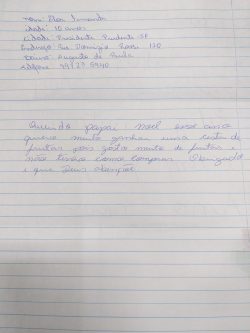 idade: 10 anos
Cidade: Presidente Prudente SP
Endereço Rua Domingos Rossi 120
Bairro Augusto de Paula
Querido papai Noel esse ano
queria muito ganhar uma cesta de
frutas pois gosto muito de frutas e
não tenho como comprar Obrigado
e que Deus abençoe